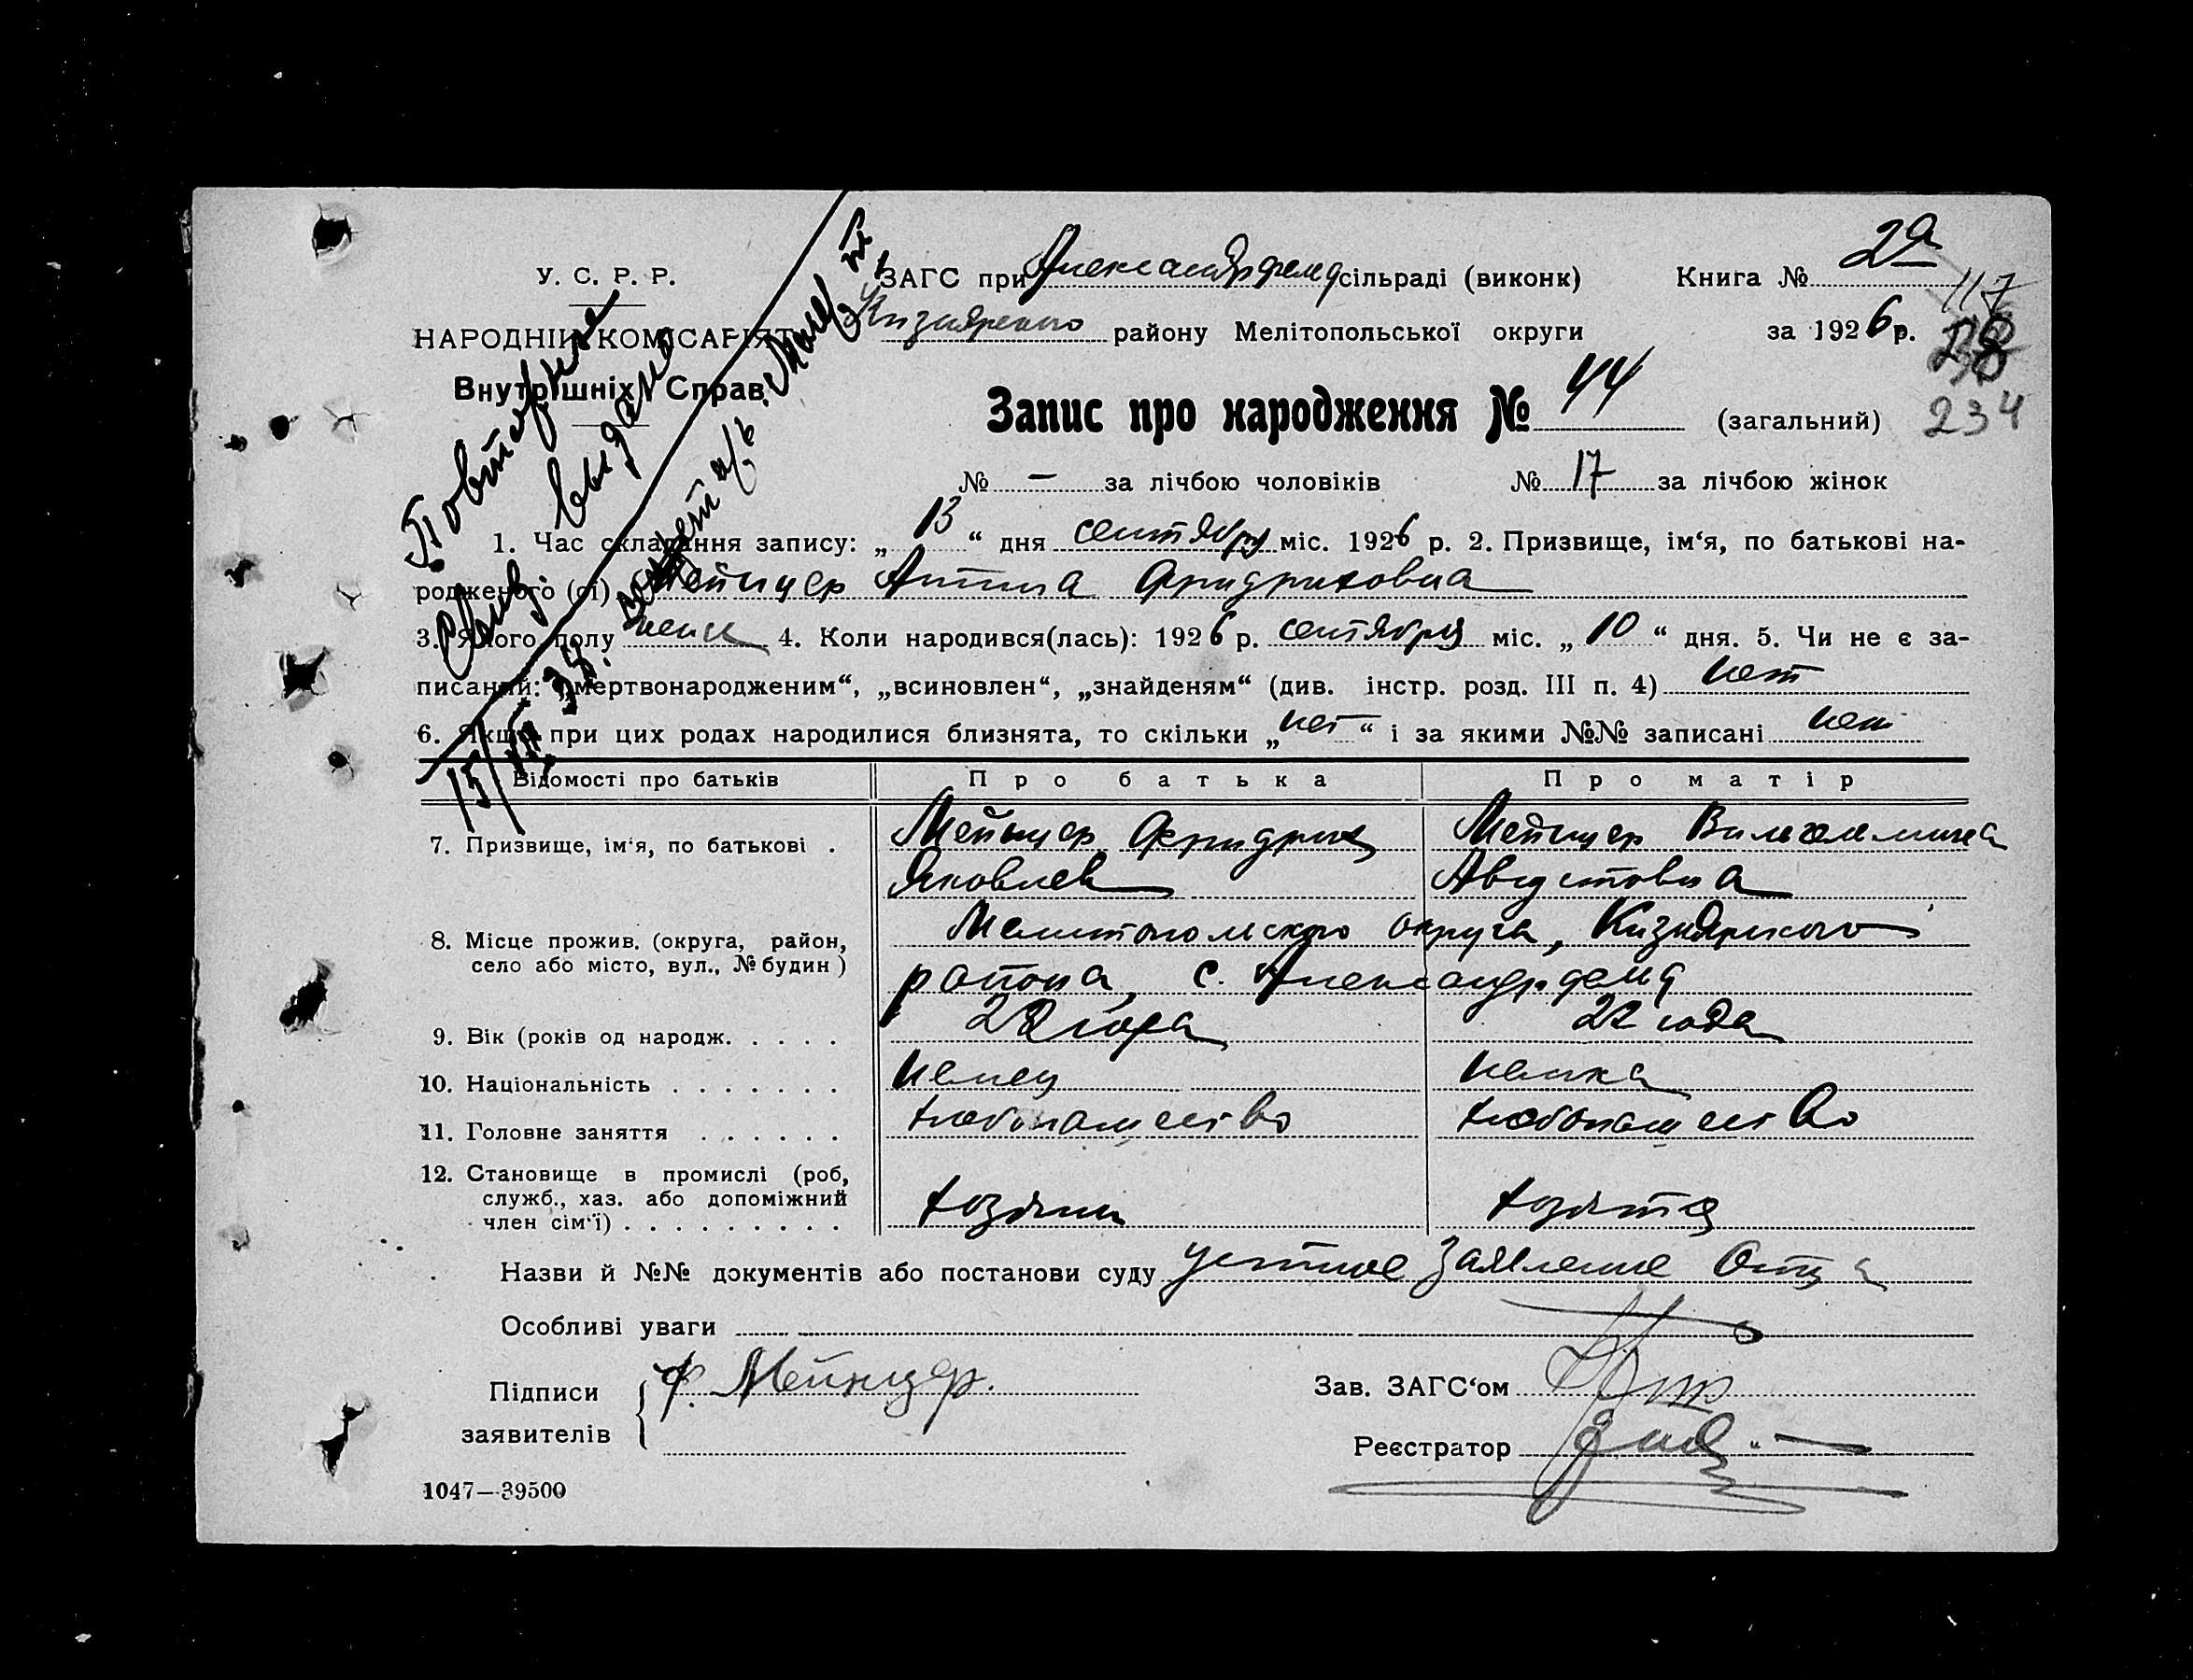 У. С. Р. Р.
НАРОДНІЙ КОМІСАРІЯТ
Внутрішніх Справ
Повторное
Свид. выдано
15/VII 38.
ЗАГС при Александрфельд сільраді (виконк)
Кизиярского району Мелітопольської округи
Книга № 2а
за 1926 р.
117
28
234
Запис про народження № 44 (загальний)
№ — за лічбою чоловіків № 17 за лічбою жінок
1. Час складання запису: „13“ дня сентября міс. 1926 р. 2. Призвище, ім‘я, по батькові на-
родженого (ої) Мейнцер Анна Фридриховна
3. Якого полу женск 4. Коли народився(лась): 1926 р. сентября міс. „10“ дня. 5. Чи не є за-
писаний: „мертвонародженим“, „всиновлен“, „знайденям“ (див. інстр. розд. III п. 4) нет
6. Якщо при цих родах народилися близнята, то скільки „нет“ і за якими №№ записані нет
Відомості про батьків Про батька Про матір
7. Призвище, ім‘я, по батькові . Мейнцер Фридрих Мейнцер Вильгельмина
Яковлев Августовна
8. Місце прожив. (округа, район, Мелитопольского округа, Кизиярского
село або місто, вул., № будин) района, с. Александрфельд
9. Вік (років од народж. . . . . 28 года 22 года
10. Національність . . . . . . . немец немка
11. Головне заняття . . . . . . хлебопашество хлебопашество
12. Становище в промислі (роб,
служб., хаз. або допоміжний
член сім‘ї) . . . . . . . . . хозяин хозяйка
Назви й №№ документів або постанови суду устное заявление отца
Особливі уваги
Підписи
заявителів
Ф. Мейнцер.
Зав. ЗАГС‘ом
Реєстратор
1047—39500